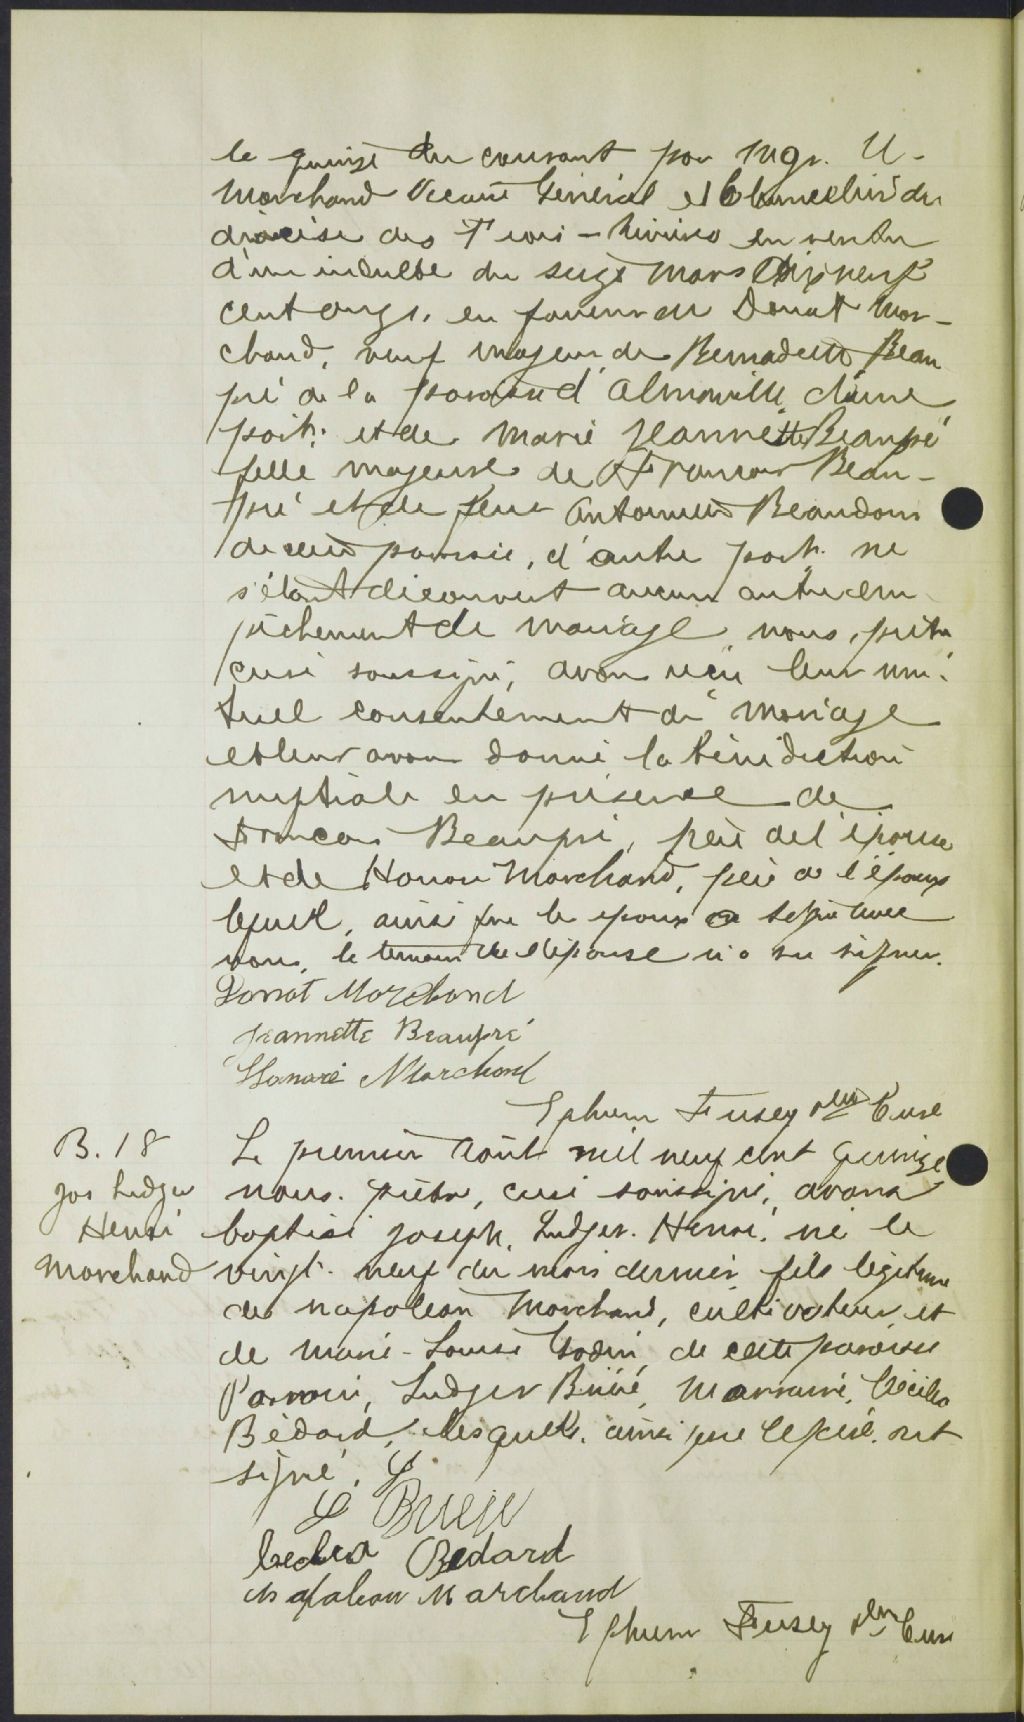 le quinze du courant par Mgr. U-
Marchand Vicaire Général et Chancelier du
diocèse des Trois-Rivières en vertu
d'un indulte du seize Mars Dix neuf
cent onze, en faveur de Donat Mar-
chand, veuf majeur de Bernadette Beau
pré de la paroisse d'Almaville d'une
part: et de Marie Jeannette Beaupré
fille majeure de François Beau-
pré et de feue Antoinette Beaudoin
de cette paroisse, d'autre part. ne
s'étant découvert aucun autre em-
pêchement de mariage, nous, prêtre
curé soussigné, avons reçu leur mu-
tuel consentement de mariage
et leur avons donné la bénédiction
nuptiale en présence de
François Beaupré, père de l'épouse
et de Honoré Marchand, père de l'époux
lequel, ainsi que les époux signé avec
nous, le témoin de l'épouse n'a su signer.
Donat Marchand
Jeannette Beaupré
Honoré Marchand
Ephrem Fusey ptre Curé
B. 18
Jos Ludger
Henri
Marchand
Le premier Août mil neuf cent quinze
nous. prêtre, curé soussigné, avons
baptisé Joseph, Ludger. Henri, né le
vingt-neuf du mois dernier fils légitime
de Napoléon Marchand, cultivateur, et
de Marie-Louise Godin, de cette paroisse
Parrain, Ludger Marraine, Cécilia
Bédard, lesquels, ainsi que le père. ont
signé.
L
Cecilia Bedard
Napoléon Marchand
Ephrem Fusey ptre Curé